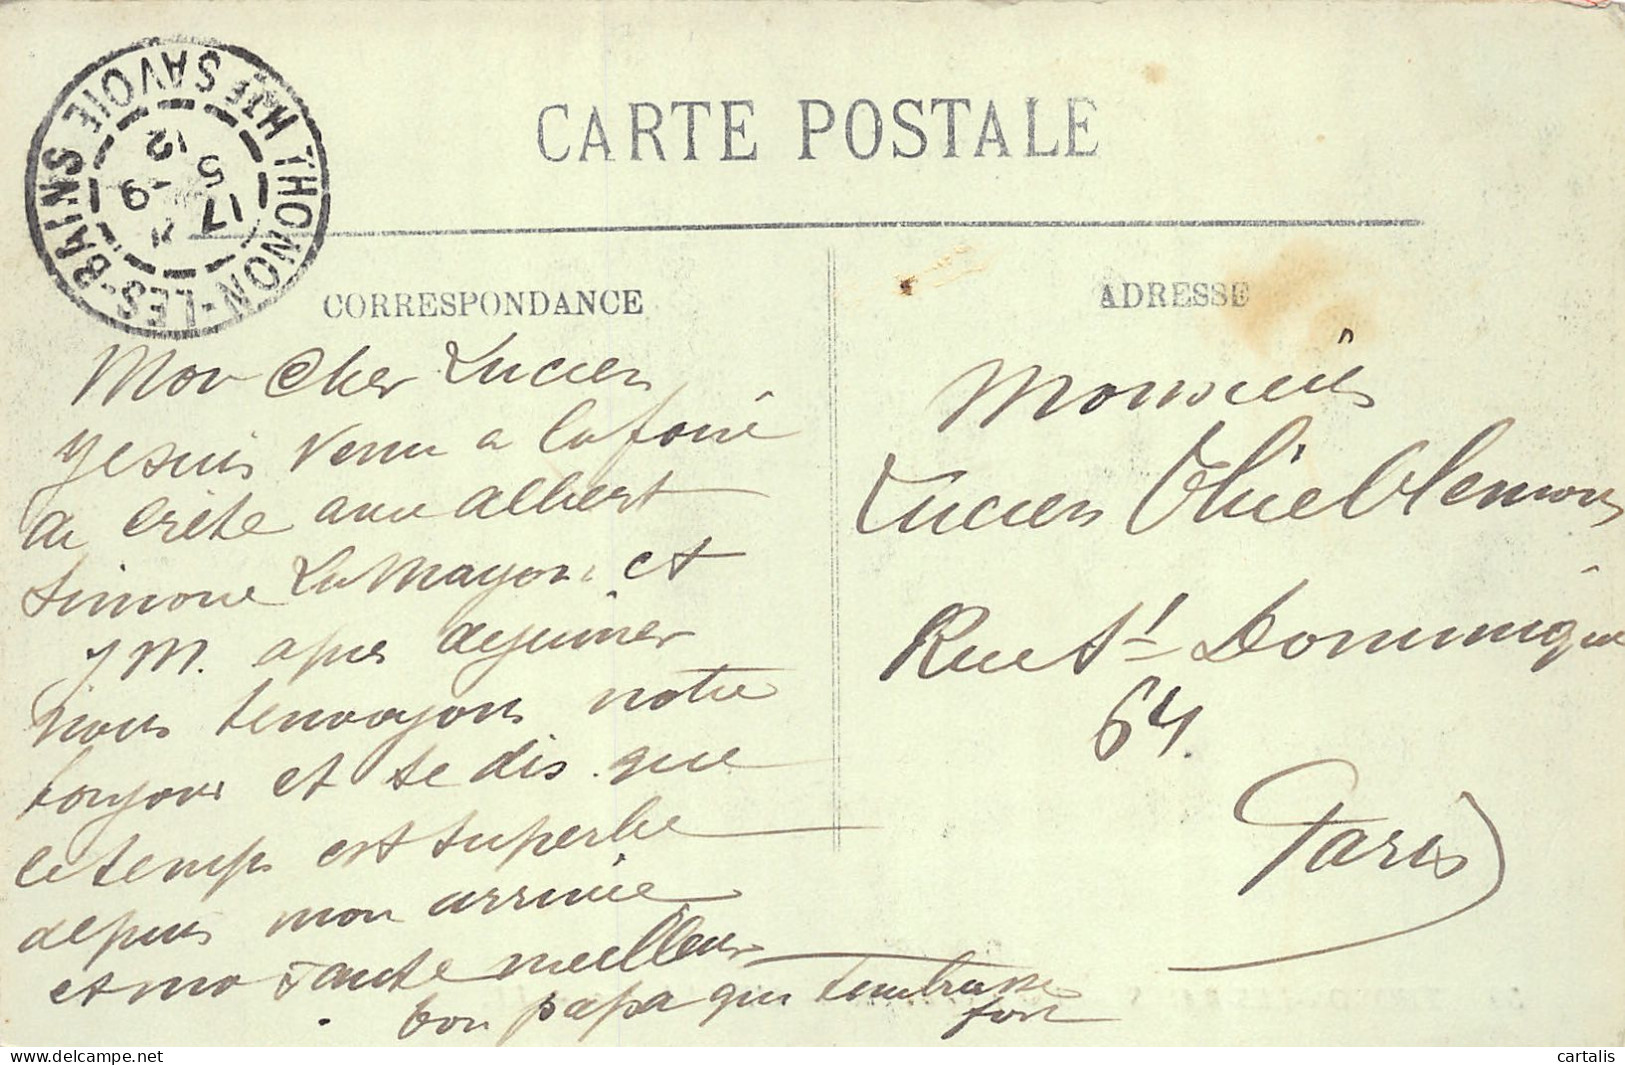 THONON-LES-BAINS
HTE SAVOIE
17
5
9
12
CARTE POSTALE
CORRESPONDANCE
Mon Cher Lucien
Je suis venu a la foire
de Crête avec Albert
Simone La Mayon et
J M. apres dejeuner
nous tenvoyons notre
bonjour et te dis que
le temps est superbe
depuis mon arrivée
et ma santé meilleur
ton papa qui tembrasse
fort
ADRESSE
Monsieur
Lucien
Rue St Dominique
64.
Paris
cartalis